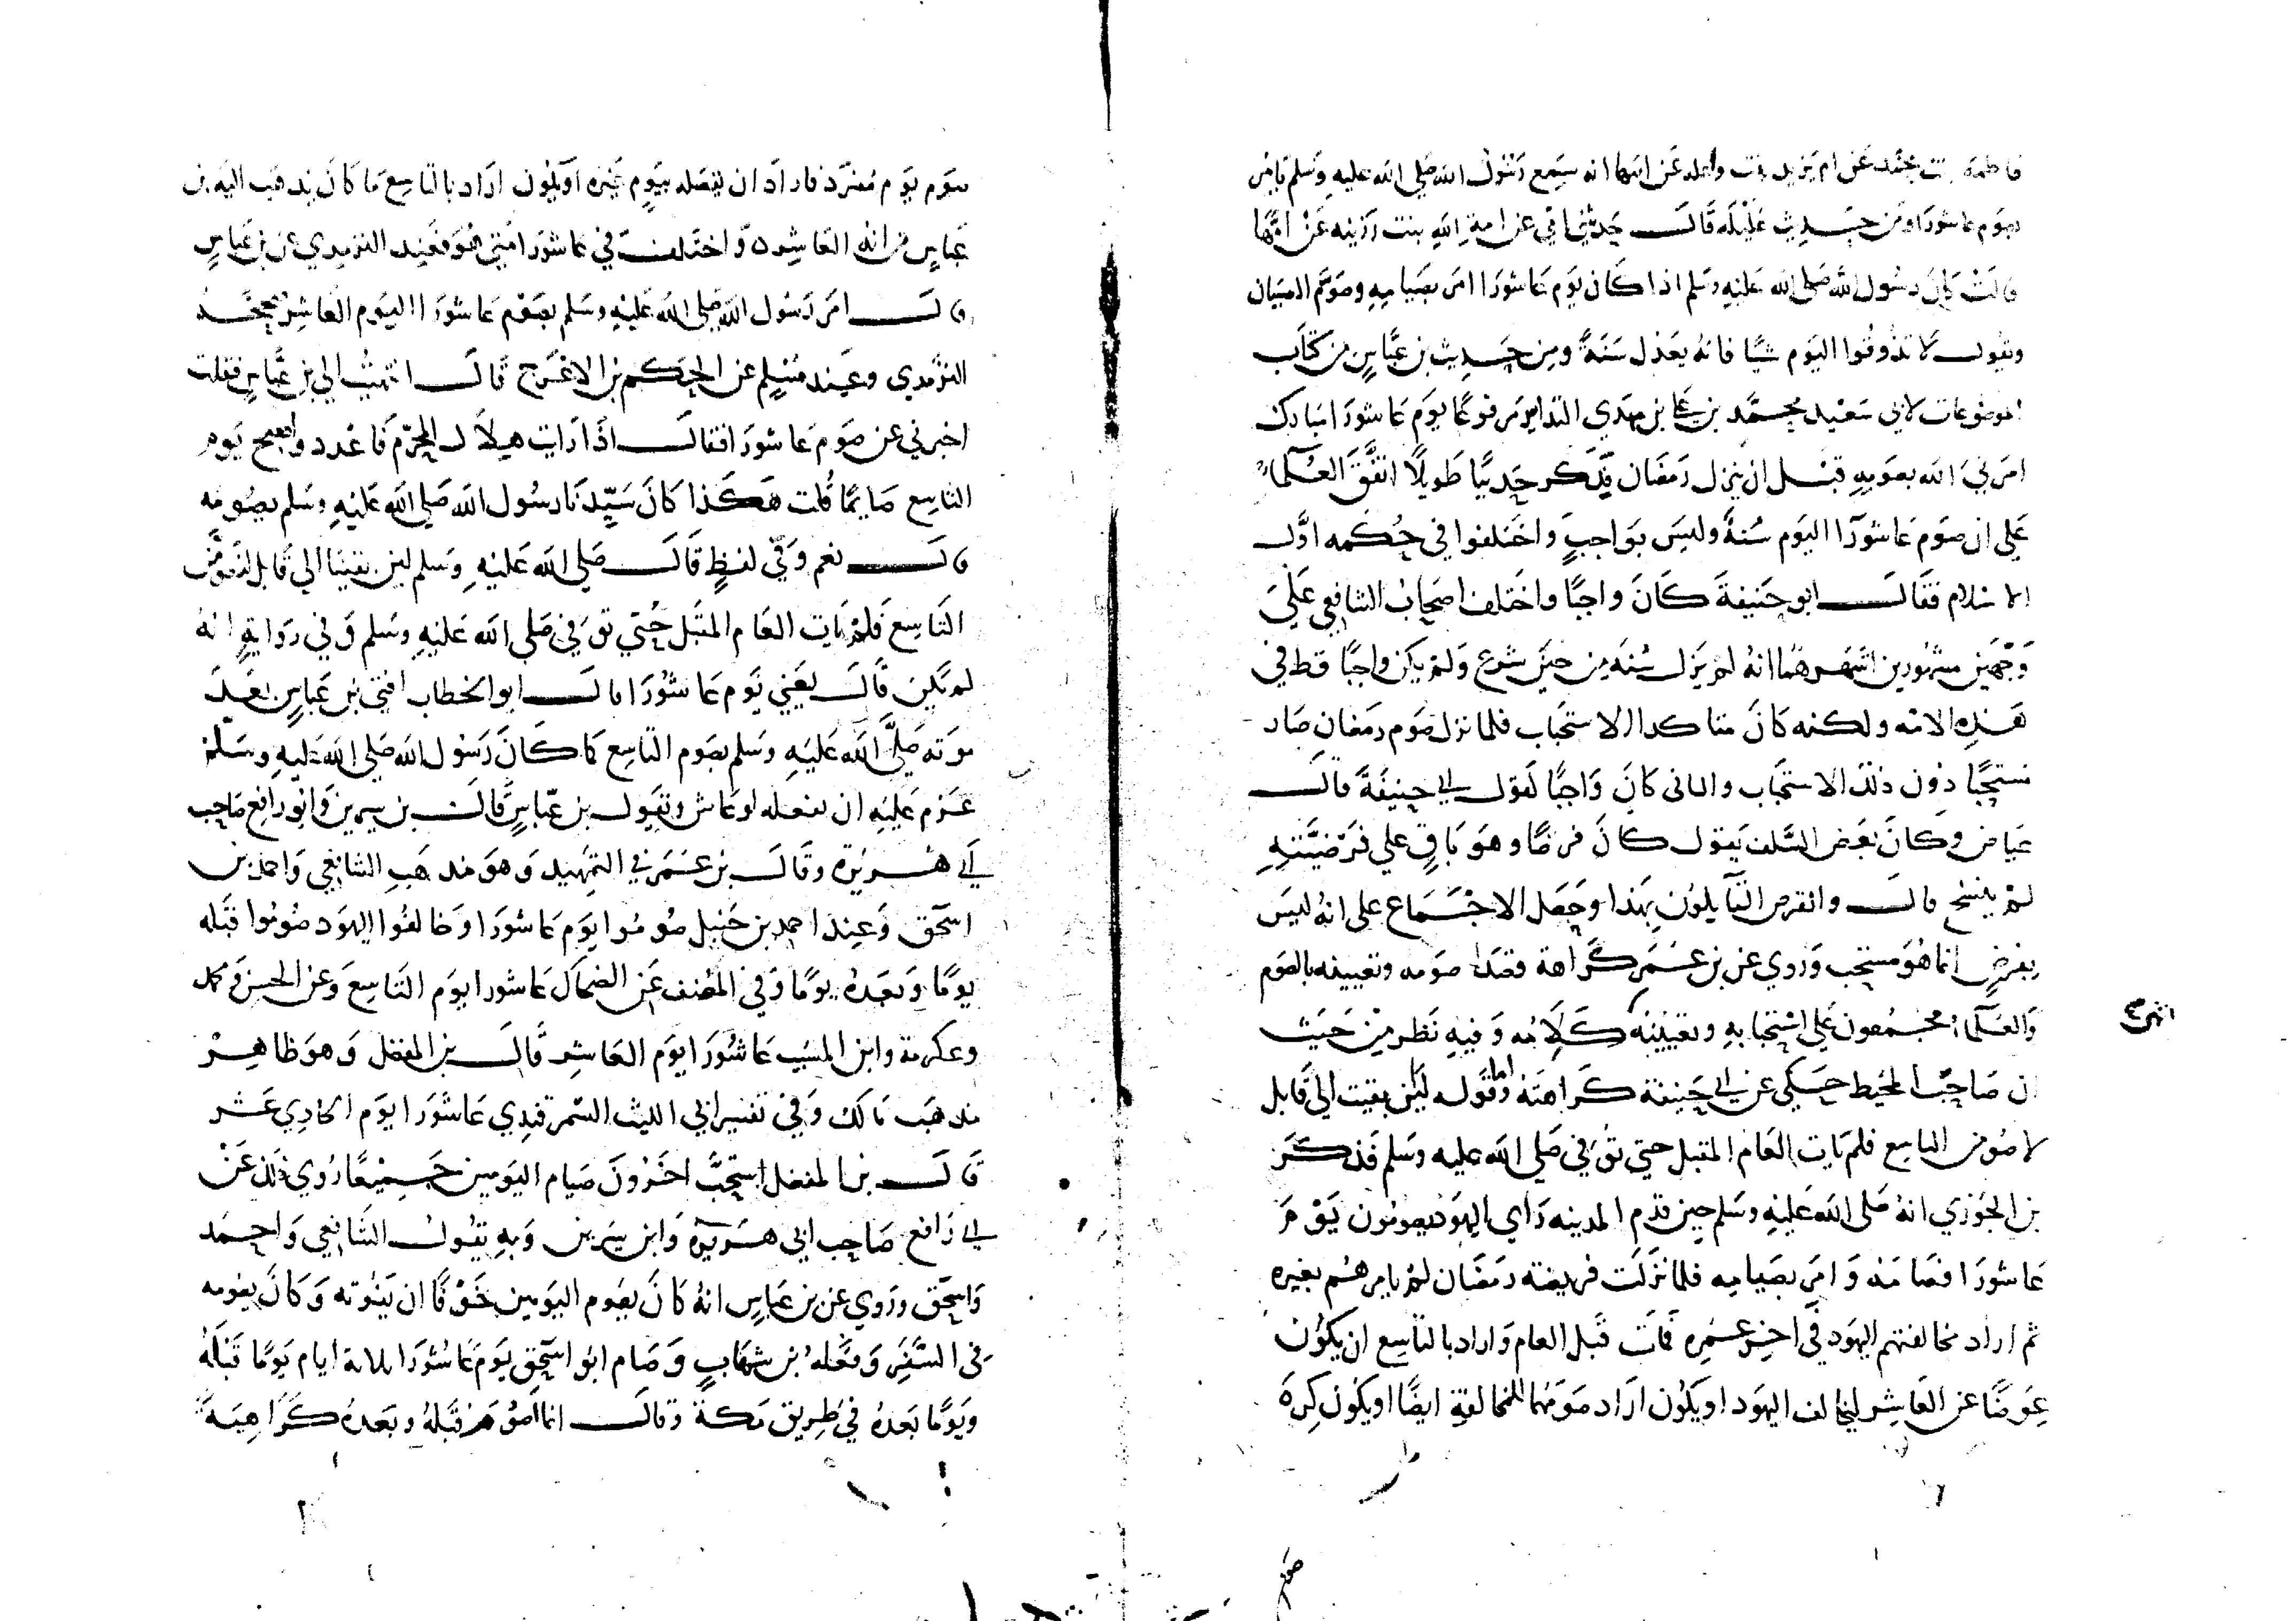 فاطمه بنت محمد عن ام يزيد بنت واعله عن امها انه سمع رسول الله صلى الله عليه وسلم يامر
بصوم عاشورا ومن حديث عليله قالـــت حدثتني امي عن امة الله بنت رزينه عن امها
قالت كان رسول الله صلى الله عليه وسلم اذا كان يوم عاشورا امر بصيامه وصوم الصبيان
ويقول لا تذوقوا اليوم شيا فانه يعدل سنة ومن حديث بن عباس من كتاب
الموضوعات لابي سعيد محمد بن علي بن مهدي النقاش مرفوعا يوم عاشورا مبارك
امرني الله بصومه قبل ان ينزل رمضان فذكر حديثا طويلا اتفق العلماء
علي ان صوم عاشورا اليوم سنة وليس بواجب واختلفوا في حكمه اول
الاسلام فقال ابو حنيفة كان واجبا واختلف اصحاب الشافعي علي
وجهين مشهورين اشهرهما انه لم يزل سنه من حين شرع ولم يكن واجبا قط في
هذه الامه ولكنه كان متاكد الاستحباب فلما نزل صوم رمضان صار
مستحبا دون ذلك الاستحباب والثاني كان واجبا لقول ابي حنيفة قال
عياض وكان بعض السلف يقول كان فرضا وهو باق علي فرضيته
لم ينسخ قال وانقرض القايلون بهذا وحصل الاجماع على انه ليس
بفرض انما هو مستحب وروي عن بن عمر كراهة قصد صومه وتعيينه بالصوم
والعلماء مجمعون علي استحبابه وتعيينه كلامه وفيه نظر من حيث
انتهى
ان صاحب المحيط حكي عن ابي حنيفة كراهته واما قوله لين بقيت الي قابل
لاصومن التاسع فلم يات العام المقبل حتي توفي صلي الله عليه وسلم فذكر
بن الجوزي انه صلى الله عليه وسلم حين قدم المدينه راي اليهود يصومون يوم
عاشورا فصامه وامر بصيامه فلما نزلت فريضة رمضان لم يامرهم بغيره
ثم اراد مخالفتهم اليهود في اخر عمره فمات قبل العام واراد بالتاسع ان يكون
عوضا عن العاشر ليخالف اليهود او يكون اراد صومهما للمخالفة ايضا او يكون كره
صوم يوم مفرد فاراد ان يفصله بيوم غيره او يكون اراد بالتاسع ما كان يذهب اليه بن
عباس من انه العاشر واختلف في عاشورا متي هو فعند الترمذي عن بن عباس
قال امر رسول الله صلى الله عليه وسلم بصوم عاشورا اليوم العاشر صححه
الترمذي وعند مسلم عن الحكم بن الاعرج قال انتهيت الي بن عباس فقلت
اخبرني عن صوم عاشورا فقال اذا رايت هلال المحرم فاعدد واصبح يوم
التاسع صايما قلت هكذا كان سيدنا رسول الله صلى الله عليه وسلم يصومه
قال نعم وفي لفظ قال صلى الله عليه وسلم لين بقينا الي قابل لنصومن
التاسع فلم يات العام المقبل حتي توفي صلي الله عليه وسلم وفي رواية انه
لم يكن قال يعني يوم عاشورا قال ابو الخطاب افتي بن عباس بعد
موته صلى الله عليه وسلم بصوم التاسع كما كان رسول الله صلى الله عليه وسلم
عزم عليه ان يفعله لو عاش وبقول بن عباس قال بن سيرين وابو رافع صاحب
ابي هريرة وقال بن عمر في التمهيد وهو مذهب الشافعي واحمد بن
اسحق وعند احمد بن حنبل صوموا يوم عاشورا وخالفوا اليهود صوموا قبله
يوما وبعده يوما وفي المصنف عن الضحاك عاشورا يوم التاسع وعن الحسن ومحمد
وعكرمة وابن المسيب عاشورا يوم العاشر قال بن المفضل وهو ظاهر
مذهب مالك وفي تفسير ابي الليث السمرقندي عاشورا يوم الحادي عشر
قال بن المفضل استحب اخرون صيام اليومين جميعا روي ذلك عن
ابي رافع صاحب ابي هريرة وابن سيرين وبه يقول الشافعي واحمد
واسحق وروي عن بن عباس انه كان يصوم اليومين خوفا ان يفوته وكان يصومه
في السفر وفعله بن شهاب وصام ابو اسحق يوم عاشورا ثلاثة ايام يوما قبله
ويوما بعده في طريق مكة وقال انما اصوم قبله وبعده كراهية